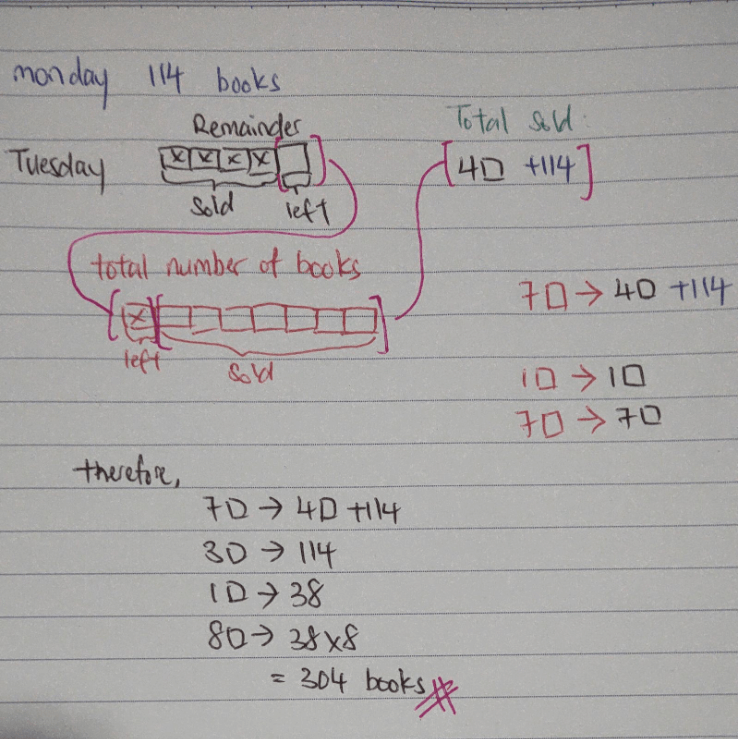 monday 114 books
Remainder
Total sold:
Tuesday
[4□ +114]
sold left
total number of books
7□ → 4□ +114
left sold
1□ → 1□
7□ → 7□
therefore,
7□ → 4□ +114
3□ → 114
1□ → 38
8□ → 38×8
= 304 books